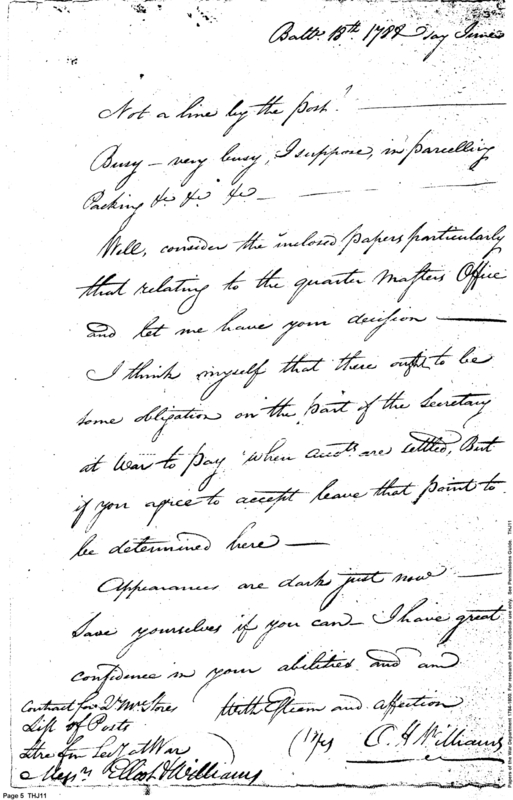 Balt. 13th. 1788
Not a line by the post! —
Busy — very busy, I suppose, in parcelling
Packing &c &c &c —
Well, consider the inclosed papers particularly
that relating to the quarter Masters Office
and let me have your decision —
I think myself that there ought to be
some obligation on the part of the Secretary
at War to pay when accots. are settled, But
if you agree to accept leave that point to
be determined here —
Appearances are dark just now —
Save yourselves if you can — I have great
confidence in your abilities and am
With Esteem and affection
O. H Williams
Contract for Qr. Mr. Stores
List of Posts
Lre fm Secy at War
Messrs Elliot & Williams
Page 5 THJ11
Papers of the War Department 1784-1800. For research and instructional use only. See Permissions Guide. THJ11